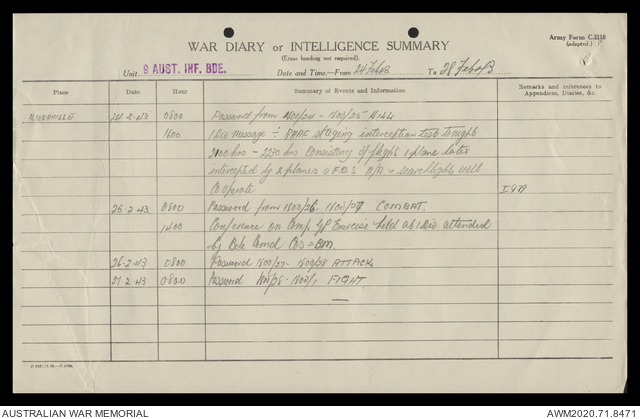 Army Form C.2118
(adapted.)
WAR DIARY or INTELLIGENCE SUMMARY
(Erase heading not required).
Unit 9 AUST. INF. BDE. Date and Time—From 24 Feb 43 To 28 Feb 43
Place Date Hour Summary of Events and Information Remarks and references to Appendices, Diaries, &c.
24-2-43 0800 Password from 1800/24 - 1800/25 HILL
1600 1 Div message RAAF staging interception test tonight
2100 hrs - 2230 hrs consisting of flight 1 plane later
intercepted by 2 planes searchlights will
cooperate
25-2-43 0800 Password from 1800/26 - 1800/27 COMBAT.
1400 Conference on Exercise held at 1 Div attended
by Bde Comd BM.
26-2-43 0800 Password 1800/27 - 1800/28 ATTACK
27-2-43 0800 Password 1800/28 - 1800/1 FIGHT
AUSTRALIAN WAR MEMORIAL
AWM2020.71.8471